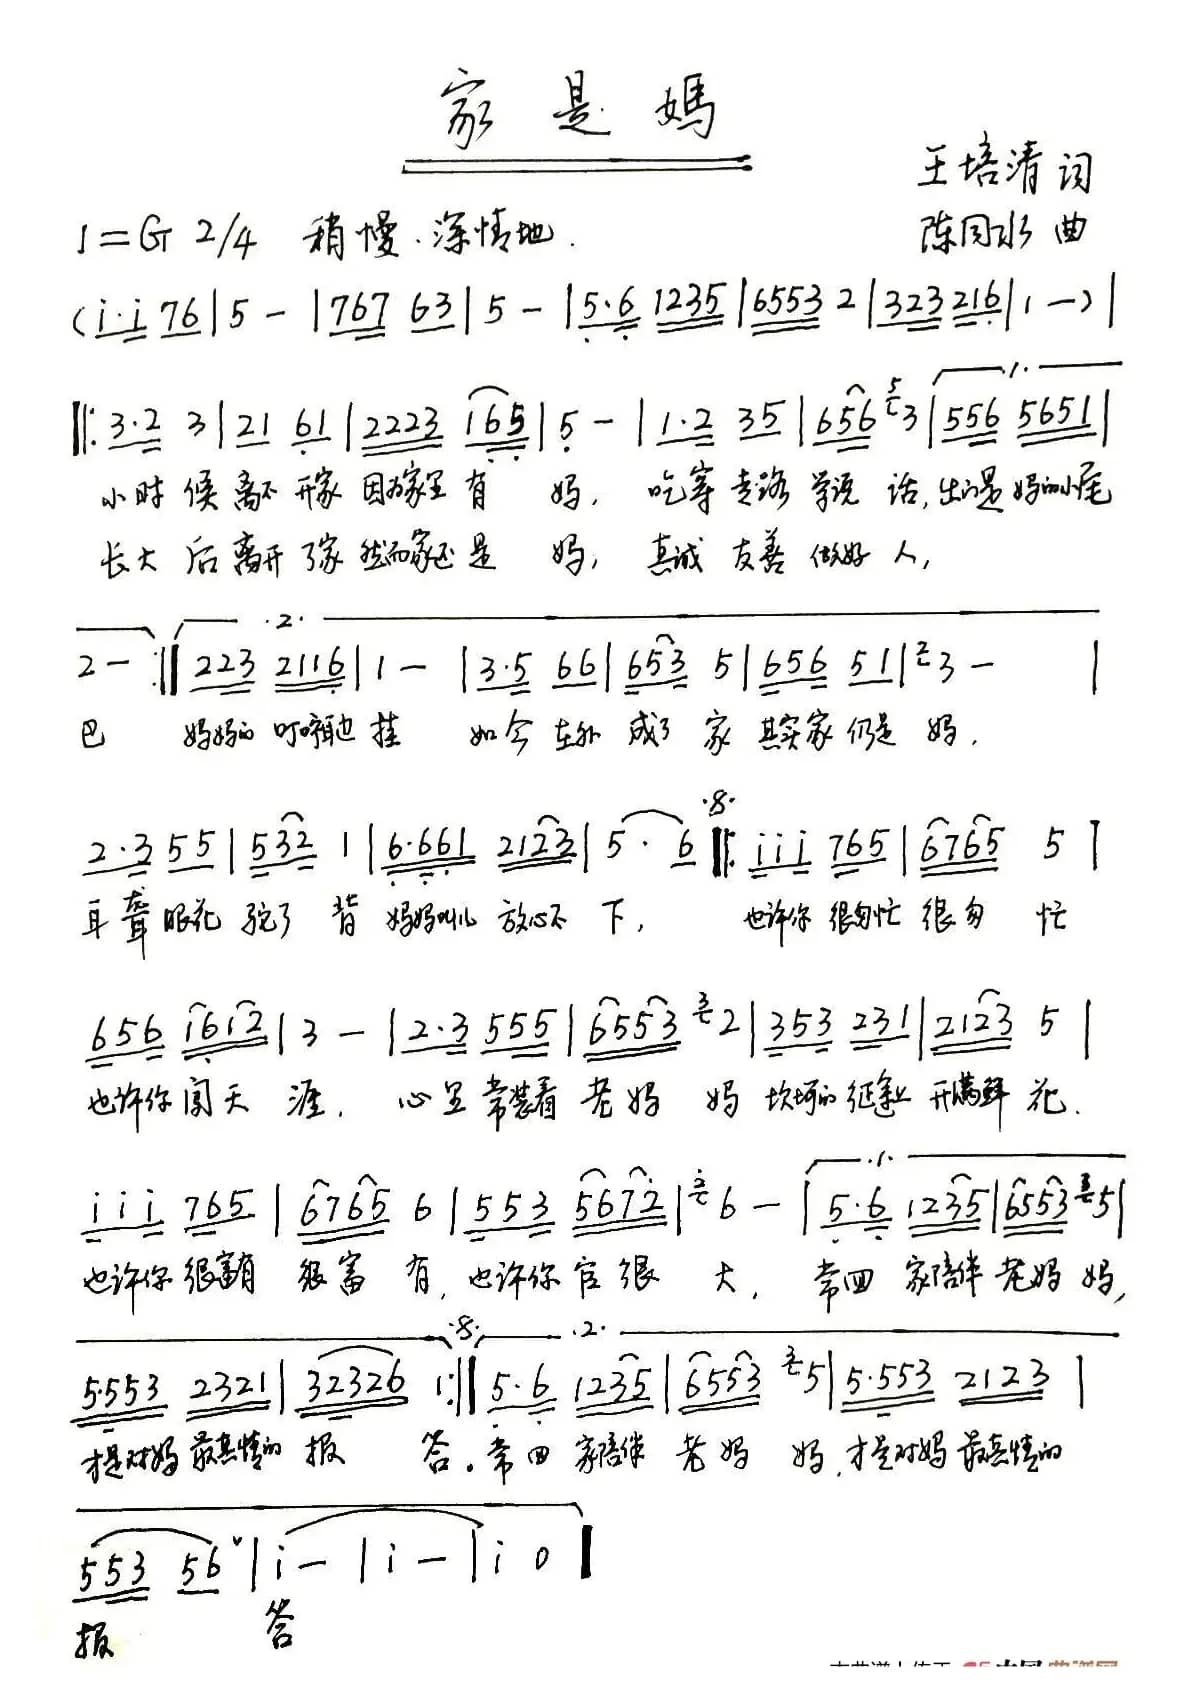 家是媽
王培清 词
1=G 2/4 稍慢.深情地.
陈同水 曲
(i·i 76|5 -|767 63|5 -|5·6 1235|6553 2|323 216|1 -)|
‖:3·2 3|21 61|2223 165|5 -|1·2 35|656 53|556 5651|
小时候离不开家因为家里有妈,吃穿走路学说话,出门是妈的小尾
长大后离开了家然而家还是妈,真诚友善做好人,
2 - :‖223 2116|1 -|3·5 66|653 5|656 51|23 -|
巴 妈妈的叮嘱耳边挂 如今在外成了家其实家仍是妈.
2·3 55|532 1|6·661 2123|5· 6‖:iii 765|6765 5|
耳聋眼花驼了背妈妈叫儿放心不下,也许你很匆忙很匆忙
656 i6i2|3 -|2·3 555|6553 32|353 231|2123 5|
也许你闯天涯.心里常装着老妈妈坎坷的征途上开满鲜花.
iii 765|6765 6|553 5672|36 -|5·6 1235|6553 35|
也许你很富有很富有,也许你官很大,常回家陪伴老妈妈,
5·553 2321|32326 1:‖5·6 1235|6553 35|5·553 2123|
才是对妈最真情的报答。常回家陪伴老妈妈,才是对妈最真情的
553 56|i -|i -|i 0‖
报答